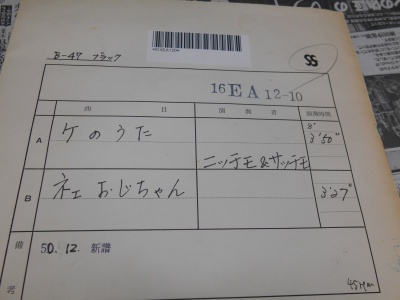 B-47 ブラック
SS
16EA 12-10
曲 目
演奏者
演奏時間
A
ケのうた
3'50"
ニッチモ&サッチモ
B
ネェ おじちゃん
3'27"
備考
50.12. 新譜
45rpm